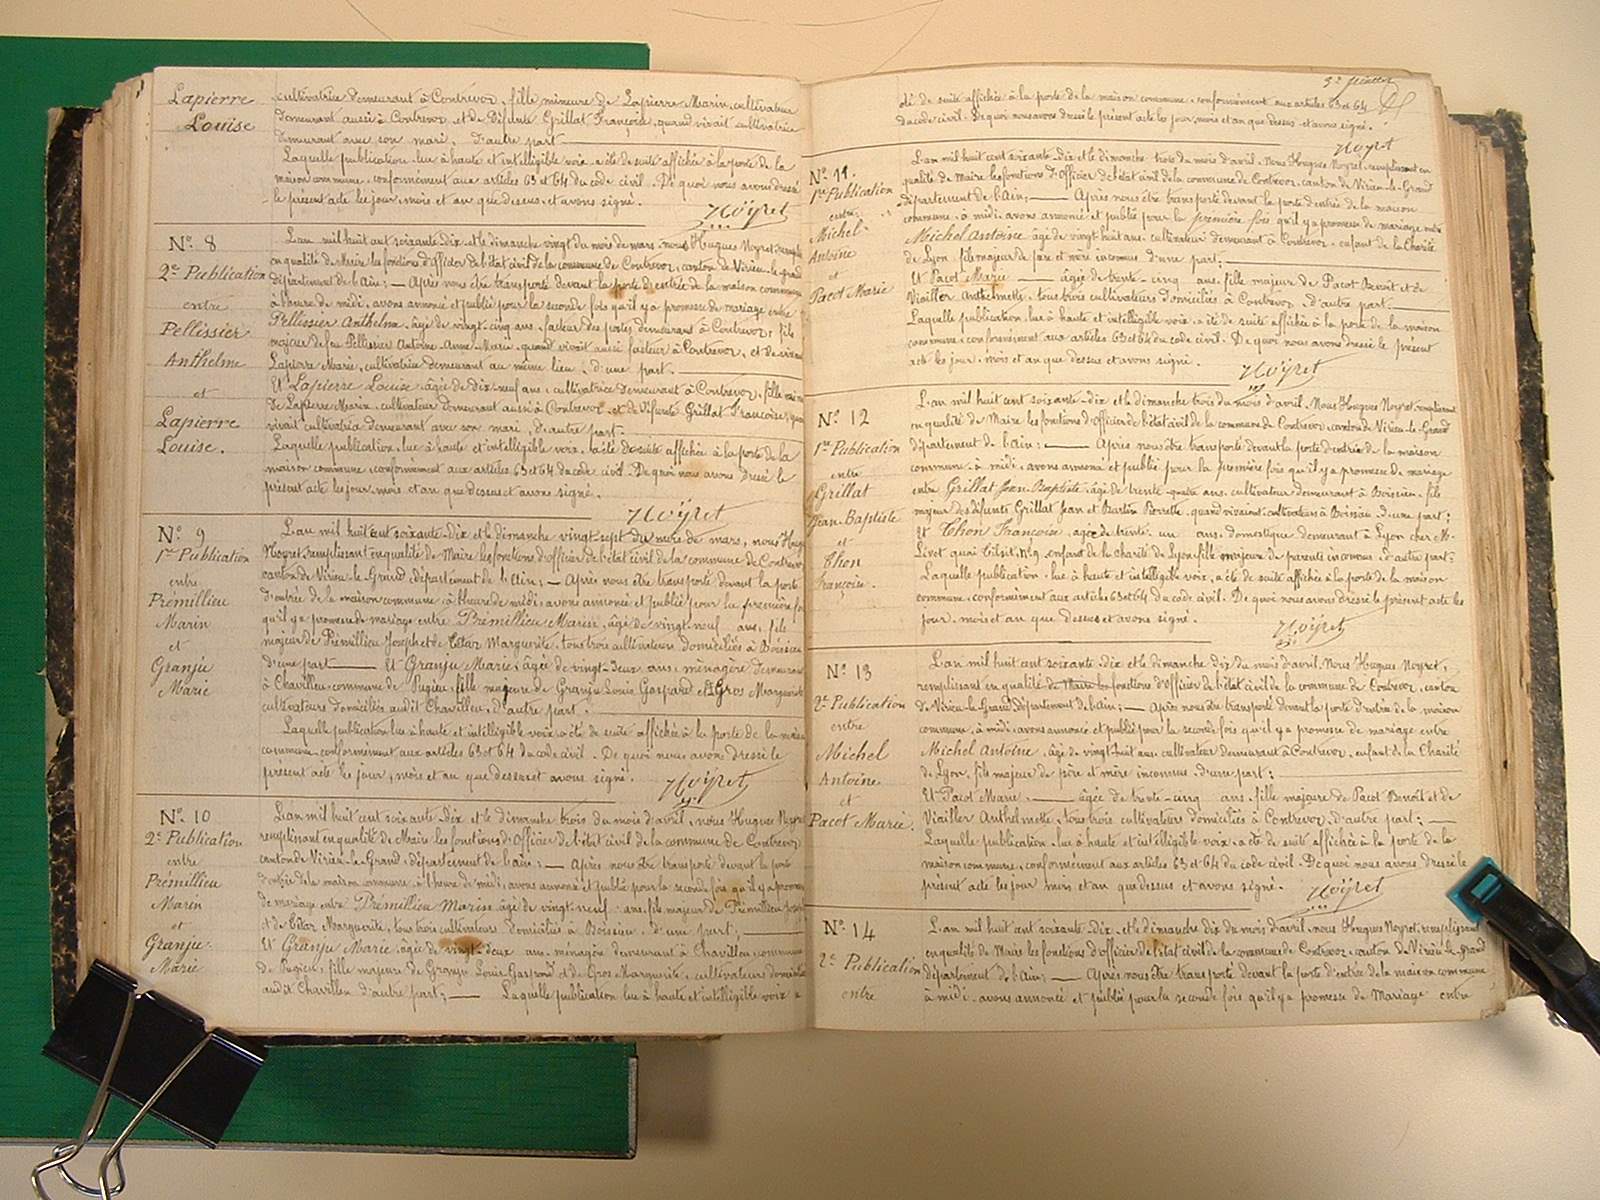 Lapierre
Louise
cultivatrice demeurant à Contrevoz, fille mineure de Lapierre Marin, cultivateur
demeurant aussi à Contrevoz, et de Défunte Grillat Françoise, quand vivait cultivatrice
demeurant avec son mari, d'autre part
Laquelle publication, lue à haute et intelligible voix, a été de suite affichée à la porte de la
maison commune, conformément aux articles 63 et 64 du code civil. De quoi nous avons dressé
le présent acte les jour, mois et an que dessus, et avons signé.
Noyret
N° 8
2e Publication
entre
Pellissier
Anthelme
et
Lapierre
Louise.
L'an mil huit cent soixante-dix et le dimanche vingt du mois de mars, nous Hugues Noyret
en qualité de Maire les fonctions d'officier de l'état civil de la commune de Contrevoz, canton de Virieu-le-grand
département de l'Ain; — Après nous être transporté devant la porte d'entrée de la maison commune
à l'heure de midi, avons annoncé et publié pour la seconde fois qu'il y a promesse de mariage entre
Pellissier Anthelme, âgé de vingt-cinq ans, facteur des postes demeurant à Contrevoz, fils
majeur de feu Pellissier Antoine-Anne-Marie, quand vivait aussi facteur à Contrevoz, et de
Marie, cultivatrice demeurant au même lieu, d'une part.
Et Lapierre Louise, âgée de dix-neuf ans, cultivatrice demeurant à Contrevoz, fille
de Lapierre Marin, cultivateur demeurant aussi à Contrevoz et de Défunte Grillat Françoise, quand
vivait cultivatrice demeurant avec son mari, d'autre part.
Laquelle publication, lue à haute et intelligible voix, a été de suite affichée à la porte de la
maison commune, conformément aux articles 63 et 64 du code civil. De quoi nous avons dressé le
présent acte les jour, mois et an que dessus et avons signé.
Noyret
N° 9
1re Publication
entre
Prémillieu
Marin
et
Granju
Marie
L'an mil huit cent soixante-dix et le dimanche vingt-sept du mois de mars, nous
Noyret remplissant en qualité de Maire les fonctions d'officier de l'état civil de la commune de Contrevoz
canton de Virieu-le-Grand, département de l'Ain; — Après nous être transporté devant la porte
d'entrée de la maison commune à l'heure de midi, avons annoncé et publié pour la première fois
qu'il y a promesse de mariage entre Prémillieu Marin, âgé de vingt-neuf ans, fils
majeur de Prémillieu Joseph et de Marguerite, tous trois cultivateurs domiciliés à Boissieu
d'une part — Et Granju Marie, âgée de vingt-deux ans, ménagère demeurant
à Chavilleu commune de Pugieu, fille majeure de Granju Louis Gaspard et Gros Marguerite
cultivateurs domiciliés audit Chavilleu, d'autre part.
Laquelle publication lue à haute et intelligible voix a été de suite affichée à la porte de la maison
commune, conformément aux articles 63 et 64 du code civil. De quoi nous avons dressé le
présent acte les jour, mois et an que dessus et avons signé.
Noyret
N° 10
2e Publication
entre
Prémillieu
Marin
et
Granju
Marie
L'an mil huit cent soixante-dix et le dimanche trois du mois d'avril, nous Hugues Noyret
remplissant en qualité de Maire les fonctions d'Officier de l'état civil de la commune de Contrevoz
canton de Virieu-le-Grand, département de l'Ain; — Après nous être transporté devant la porte
d'entrée de la maison commune, à l'heure de midi, avons annoncé et publié pour la seconde fois qu'il y a promesse
de mariage entre Prémillieu Marin âgé de vingt-neuf ans, fils majeur de Prémillieu Joseph
et de Marguerite, tous trois cultivateurs domiciliés à Boissieu, d'une part;
Et Granju Marie, âgée de vingt-deux ans, ménagère demeurant à Chavilleu commune
de Pugieu, fille majeure de Granju Louis Gaspard et de Gros Marguerite, cultivateurs domiciliés
audit Chavilleu d'autre part; — Laquelle publication lue à haute et intelligible voix a
été de suite affichée à la porte de la maison commune, conformément aux articles 63 et 64
du code civil. De quoi nous avons dressé le présent acte les jour, mois et an que dessus et avons signé.
Noyret
N° 11.
1re Publication
entre
Michel
Antoine
et
Pacot Marie
L'an mil huit cent soixante-dix et le dimanche trois du mois d'avril, Nous Hugues Noyret, remplissant en
qualité de Maire les fonctions d'Officier de l'état civil de la commune de Contrevoz, canton de Virieu-le-Grand
département de l'Ain; — Après nous être transporté devant la porte d'entrée de la maison
commune, à midi, avons annoncé et publié pour la première fois, qu'il y a promesse de mariage entre
Michel Antoine âgé de vingt-huit ans, cultivateur demeurant à Contrevoz, enfant de la Charité
de Lyon, fils majeur de père et mère inconnus d'une part;
Et Pacot Marie — âgée de trente-cinq ans, fille majeure de Pacot Benoît et de
Viailler Anthelmette, tous trois cultivateurs domiciliés à Contrevoz, d'autre part
Laquelle publication, lue à haute et intelligible voix, a été de suite affichée à la porte de la maison
commune, conformément aux articles 63 et 64 du code civil. De quoi nous avons dressé le présent
acte les jour, mois et an que dessus et avons signé.
Noyret
N° 12
1re Publication
entre
Grillat
Jean-Baptiste
et
Thon
Françoise.
L'an mil huit cent soixante-dix et le dimanche trois du mois d'avril, Nous Hugues Noyret, remplissant
en qualité de Maire les fonctions d'officier de l'état civil de la commune de Contrevoz, canton de Virieu-le-Grand
département de l'Ain; — Après nous être transporté devant la porte d'entrée de la maison
commune, à midi, avons annoncé et publié pour la première fois qu'il y a promesse de mariage
entre Grillat Jean-Baptiste, âgé de trente-quatre ans, cultivateur demeurant à Boissieu, fils
majeur des défunts Grillat Jean et Burtin Pierrette, quand vivaient cultivateurs à Boissieu d'une part;
Et Thon Françoise, âgée de trente-un ans, domestique demeurant à Lyon chez Mr
quai Tilsit, N° 9, enfant de la charité de Lyon, fille majeure de parents inconnus, d'autre part.
Laquelle publication, lue à haute et intelligible voix, a été de suite affichée à la porte de la maison
commune, conformément aux articles 63 et 64 du code civil. De quoi nous avons dressé le présent acte les
jour, mois et an que dessus et avons signé.
Noyret
N° 13
2e Publication
entre
Michel
Antoine
et
Pacot Marie.
L'an mil huit cent soixante-dix et le dimanche dix du mois d'avril, Nous Hugues Noyret,
remplissant en qualité de Maire les fonctions d'Officier de l'état civil de la commune de Contrevoz, canton
de Virieu-le-Grand, département de l'Ain; — Après nous être transporté devant la porte d'entrée de la maison
commune, à midi, avons annoncé et publié pour la seconde fois qu'il y a promesse de mariage entre
Michel Antoine, âgé de vingt-huit ans, cultivateur demeurant à Contrevoz, enfant de la Charité
de Lyon, fils majeur de père et mère inconnus d'une part;
Et Pacot Marie. — âgée de trente-cinq ans, fille majeure de Pacot Benoît et de
Viailler Anthelmette, tous trois cultivateurs domiciliés à Contrevoz, d'autre part; —
Laquelle publication, lue à haute et intelligible voix, a été de suite affichée à la porte de la
maison commune, conformément aux articles 63 et 64 du code civil. De quoi nous avons dressé le
présent acte les jour mois et an que dessus et avons signé.
Noyret
N° 14
2e Publication
entre
L'an mil huit cent soixante-dix et le dimanche dix du mois d'avril, nous Hugues Noyret, remplissant
en qualité de Maire les fonctions d'officier de l'état civil de la commune de Contrevoz, canton de Virieu-le-grand
département de l'Ain; — Après nous être transporté devant la porte d'entrée de la maison commune
à midi, avons annoncé et publié pour la seconde fois qu'il y a promesse de Mariage entre